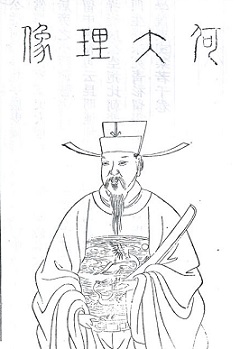 何大理像